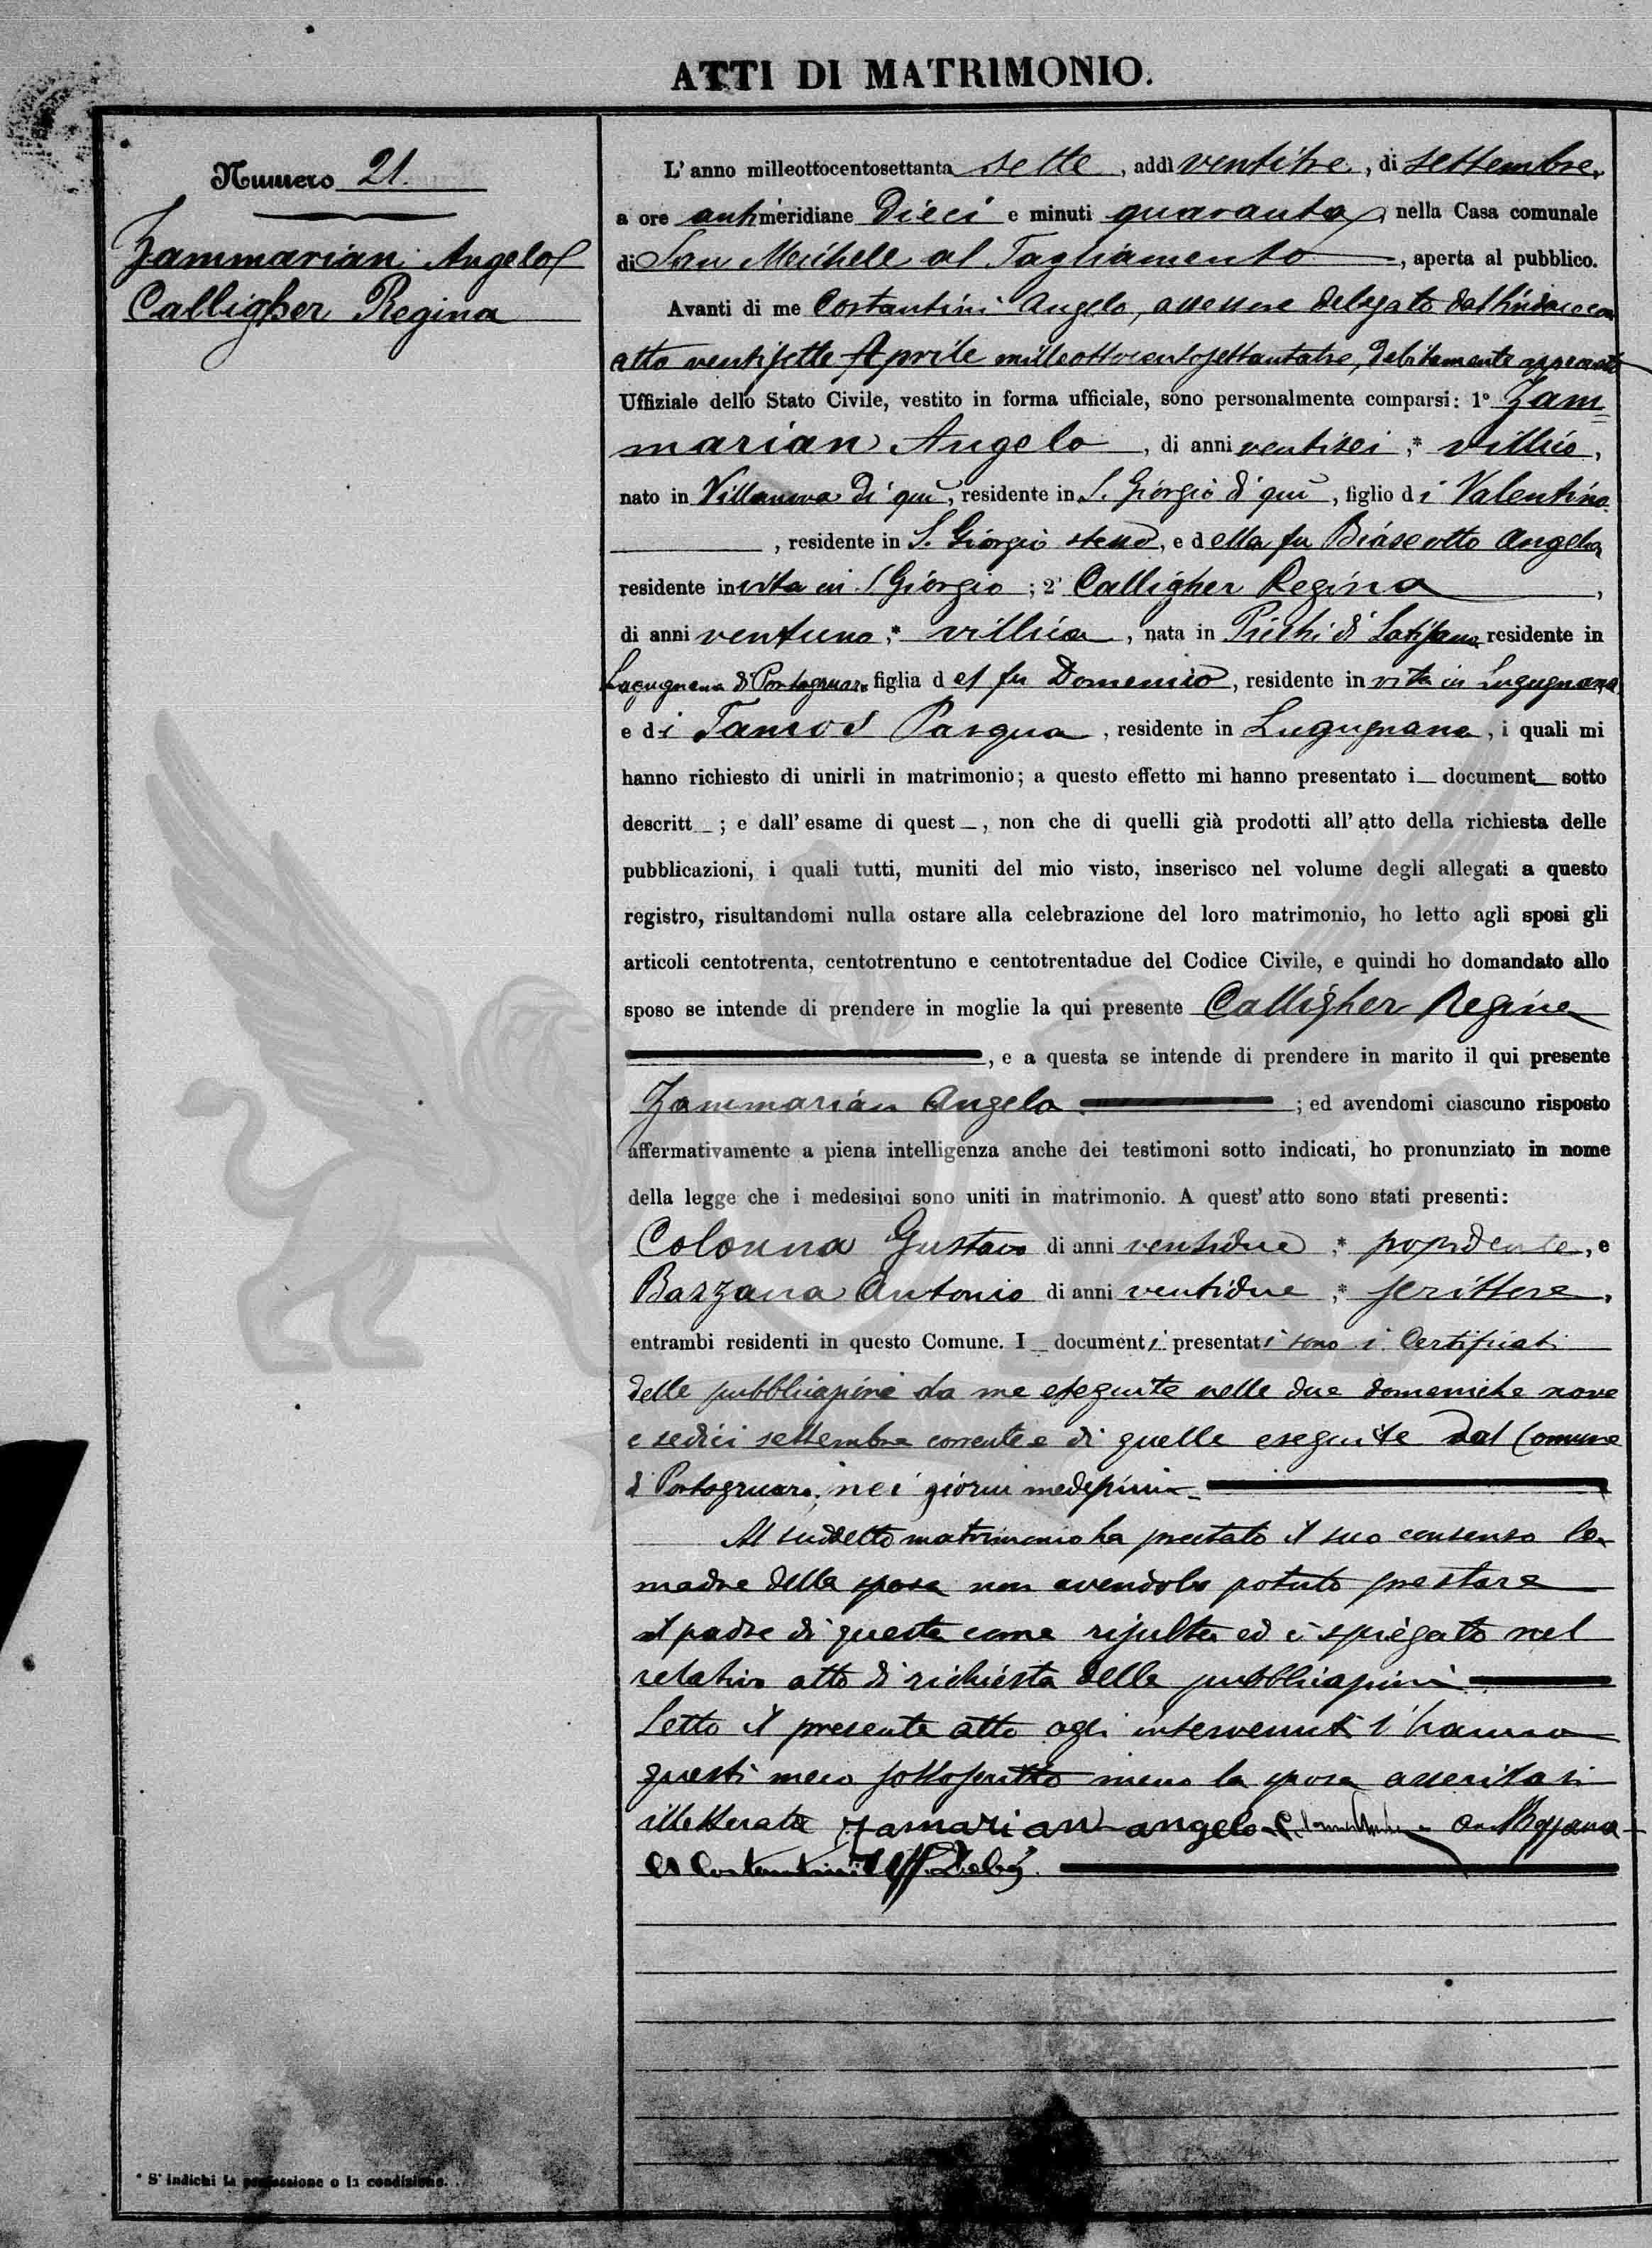 ATTI DI MATRIMONIO.
Numero 21.
Zammarian Angelo
Calligher Regina
L'anno milleottocentosettanta sette, addì ventitre, di settembre,
a ore antimeridiane dieci e minuti quaranta, nella Casa comunale
di San Michele al Tagliamento, aperta al pubblico.
Avanti di me Costantini Angelo, assessore delegato dal Sindaco con
atto ventisette Aprile milleottocentosettantatre, debitamente approvato
Uffiziale dello Stato Civile, vestito in forma ufficiale, sono personalmente comparsi: 1° Zam=
marian Angelo, di anni ventisei,* villico,
nato in Villanova di quì, residente in S. Giorgio di quì, figlio di Valentino
, residente in S. Giorgio stesso, e della fu Biasotto Angela
residente in vita in S Giorgio; 2° Calligher Regina,
di anni ventuno,* villica, nata in di Latisana residente in
Lugugnana di Portogruaro figlia del fu Domenico, residente in vita in Lugugnana
e di Pasqua, residente in Lugugnana, i quali mi
hanno richiesto di unirli in matrimonio; a questo effetto mi hanno presentato i_ document_ sotto
descritt_; e dall'esame di quest_, non che di quelli già prodotti all'atto della richiesta delle
pubblicazioni, i quali tutti, muniti del mio visto, inserisco nel volume degli allegati a questo
registro, risultandomi nulla ostare alla celebrazione del loro matrimonio, ho letto agli sposi gli
articoli centotrenta, centotrentuno e centotrentadue del Codice Civile, e quindi ho domandato allo
sposo se intende di prendere in moglie la qui presente Calligher Regina
, e a questa se intende di prendere in marito il qui presente
Zammarian Angelo; ed avendomi ciascuno risposto
affermativamente a piena intelligenza anche dei testimoni sotto indicati, ho pronunziato in nome
della legge che i medesimi sono uniti in matrimonio. A quest'atto sono stati presenti:
Colonna Gustavo di anni ventidue,* possidente, e
Bazzana Antonio di anni ventidue,* scrittore,
entrambi residenti in questo Comune. I_ documenti presentati sono i Certificati
delle pubblicazioni da me eseguite nelle due domeniche nove
e sedici settembre corrente e di quelle eseguite dal Comune
di Portogruaro, nei giorni medesimi.
Al suddetto matrimonio ha prestato il suo consenso la
madre della sposa non avendolo potuto prestare
il padre di questa come risulta ed è spiegato nel
relativo atto di richiesta delle pubblicazioni
Letto il presente atto agli intervenuti l'hanno
questi meco sottoscritto meno la sposa asseritasi
illetterata Zamarian angelo Ant Bazzana
A Costantini Uff. Deleg.
* S'indichi la professione o la condizione.